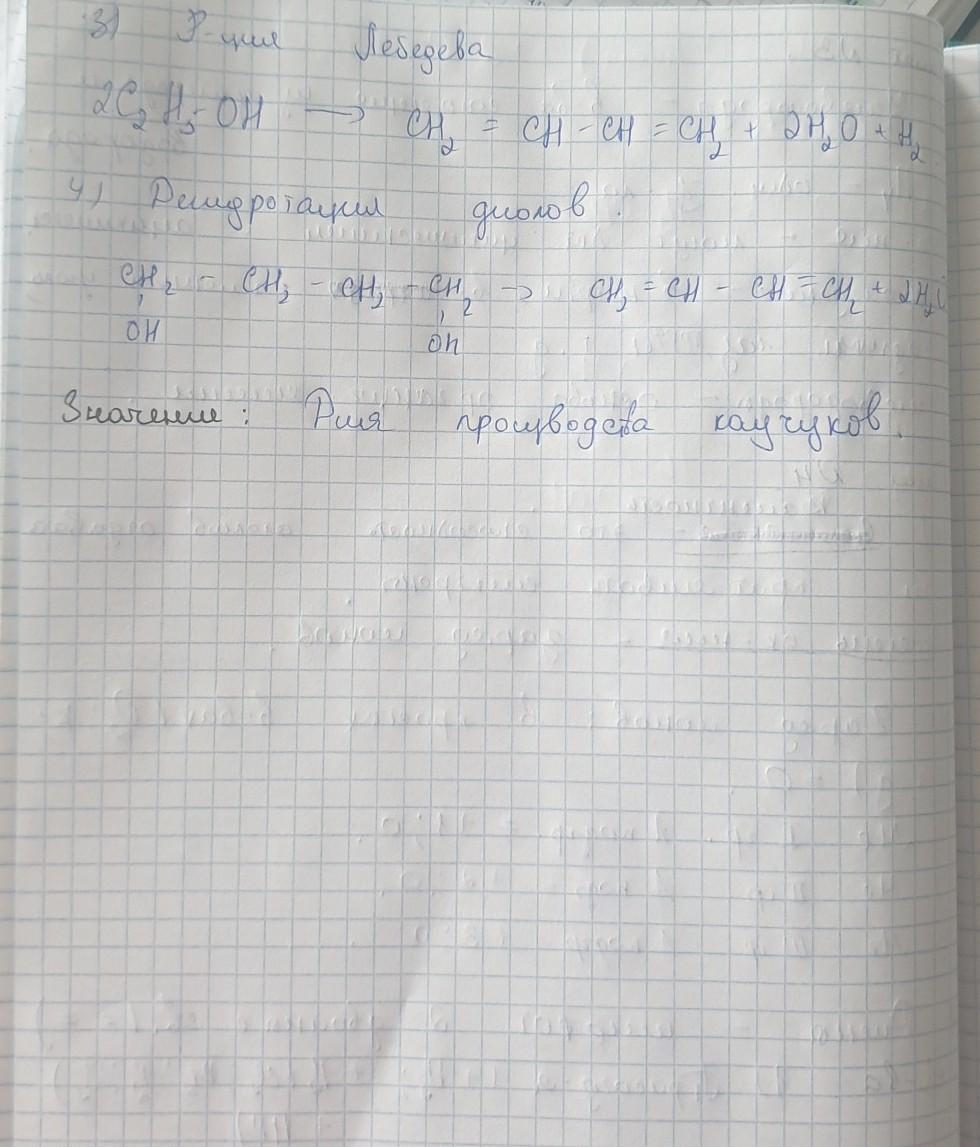 3) Р-ция Лебедева
2C₂H₅-OH → CH₂ = CH - CH = CH₂ + 2H₂O + H₂
4) Дегидротация диолов.
CH₂ - CH₂ - CH₂ - CH₂ → CH₂ = CH - CH = CH₂ + 2H₂O
OH OH
Значение: Для производства каучуков.